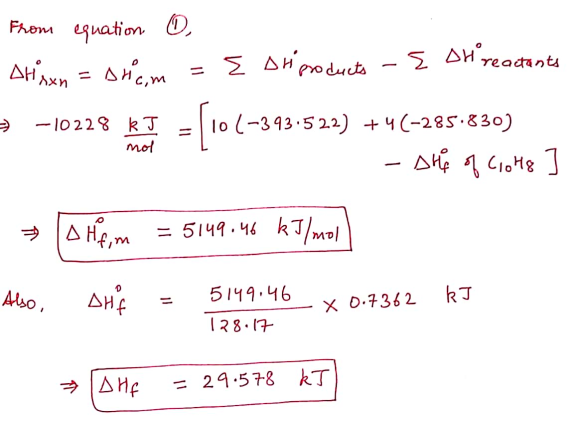 From equation ①,
ΔH°rxn = ΔH°c,m = Σ ΔH°products − Σ ΔH°reactants
⇒ −10228 kJ/mol = [10(−393.522) + 4(−285.830)
− ΔH°f of C10H8]
⇒ ΔH°f,m = 5149.46 kJ/mol
Also, ΔH°f = 5149.46/128.17 × 0.7362 kJ
⇒ ΔHf = 29.578 kJ